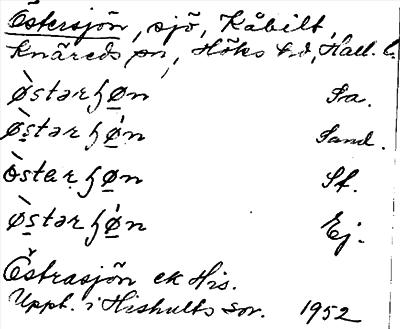 Östersjön, sjö, Kåbilt,
Knäreds sn, Höks hd, Hall. l.
ø̀stərʃøn Sa.
ø̀stərʃø̀n Sand.
òstarʃøn Sf.
ø̀stərʃø̀n Ej.
Östrasjön ek His.
Uppt. i Hishults sn. 1952